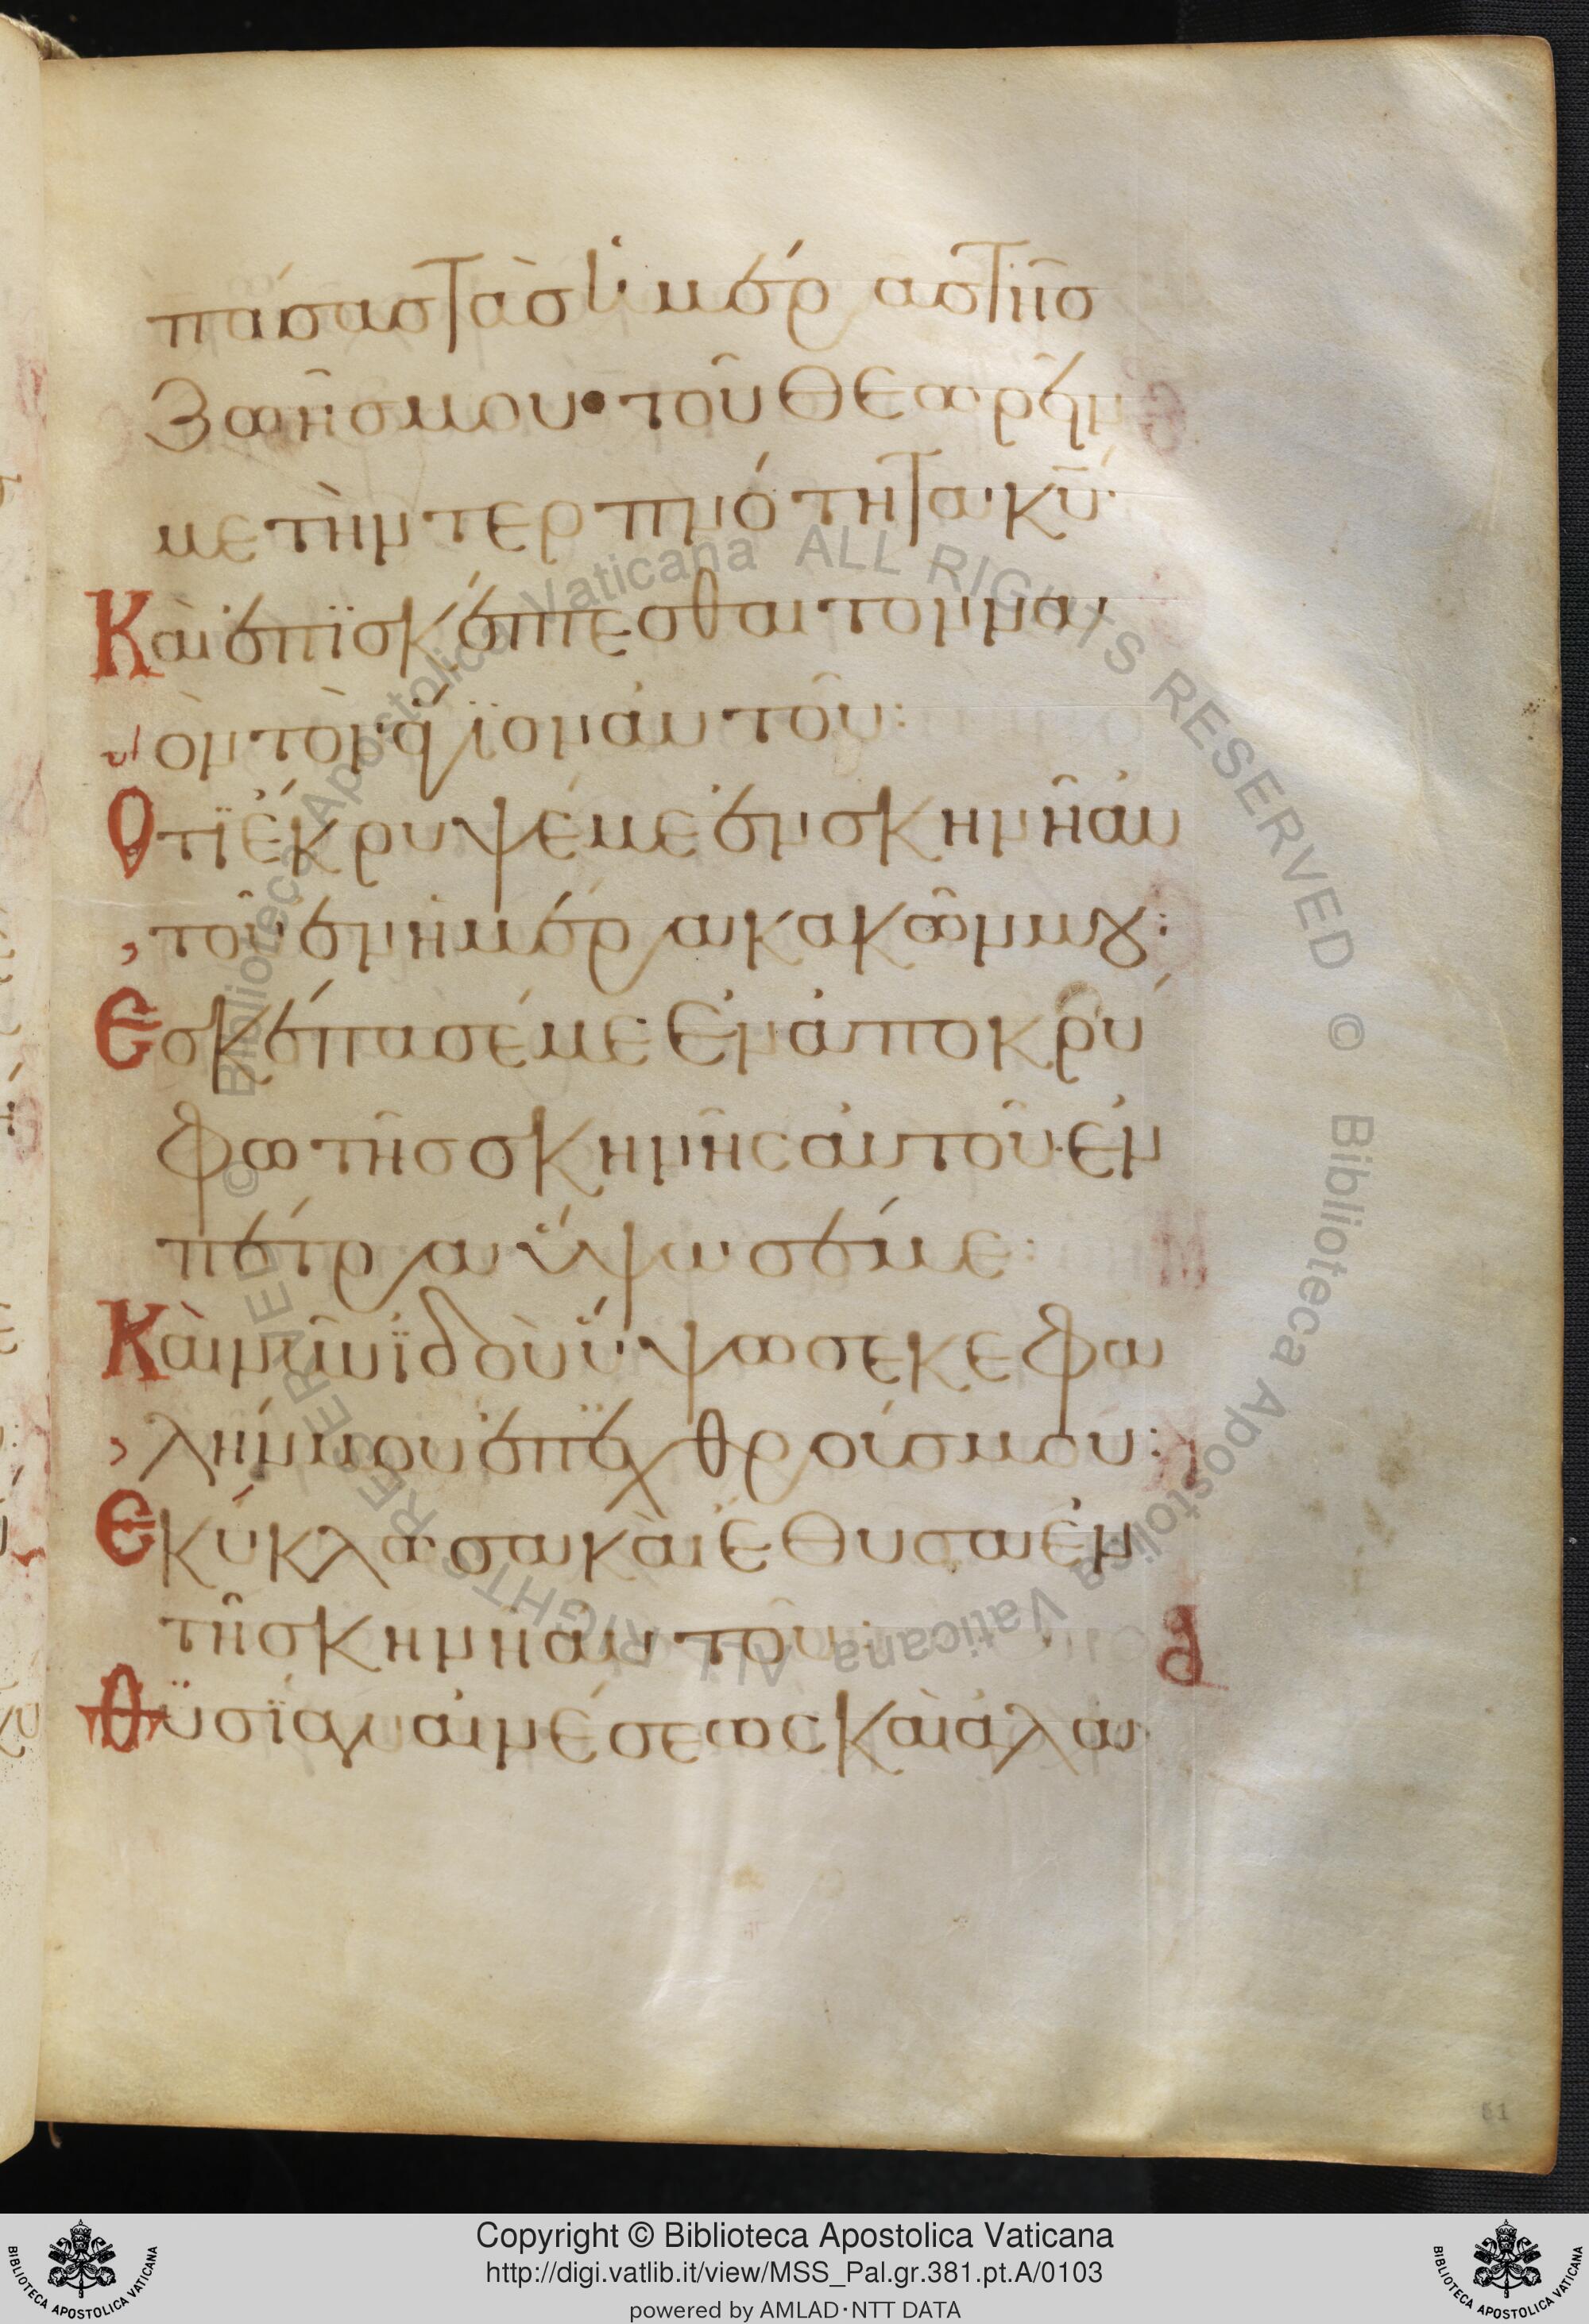 πάσας τὰς ἡμέρας τῆς
ζωῆς μου· τοῦ θεωρεῖν
με τὴν τερπνότητα κυ·
Καὶ ἐπϊσκέπτεσθαι τον να
ὸν τὸν ἅγϊον ἀυτοῦ:
Οτϊ ἔκρυψέ με ἐν σκηνῆ ἀυ
τοῦ ἐν ἡμέρα κακῶν μου:
Εσκέπασέ με ἐν ἀποκρύ
φω τῆς σκηνῆς ἀυτοῦ· ἐν
πέτρα ὕψωσέ με:
Κὰι νῦν ϊδοὺ ὕψωσε κεφα
λήν μου ἐπ ἐχθρούς μου:
Εκύκλωσα κὰι ἔθυσα ἐν
τῆ σκηνῆ ἀυτοῦ:
Θϋσίαν αἰνέσεως καὶ ἀλα
61
Biblioteca Apostolica Vaticana ALL RIGHTS RESERVED © Biblioteca Apostolica Vaticana ALL RIGHTS RESERVED ©
BIBLIOTECA APOSTOLICA VATICANA
Copyright © Biblioteca Apostolica Vaticana
http://digi.vatlib.it/view/MSS_Pal.gr.381.pt.A/0103
powered by AMLAD·NTT DATA
BIBLIOTECA APOSTOLICA VATICANA